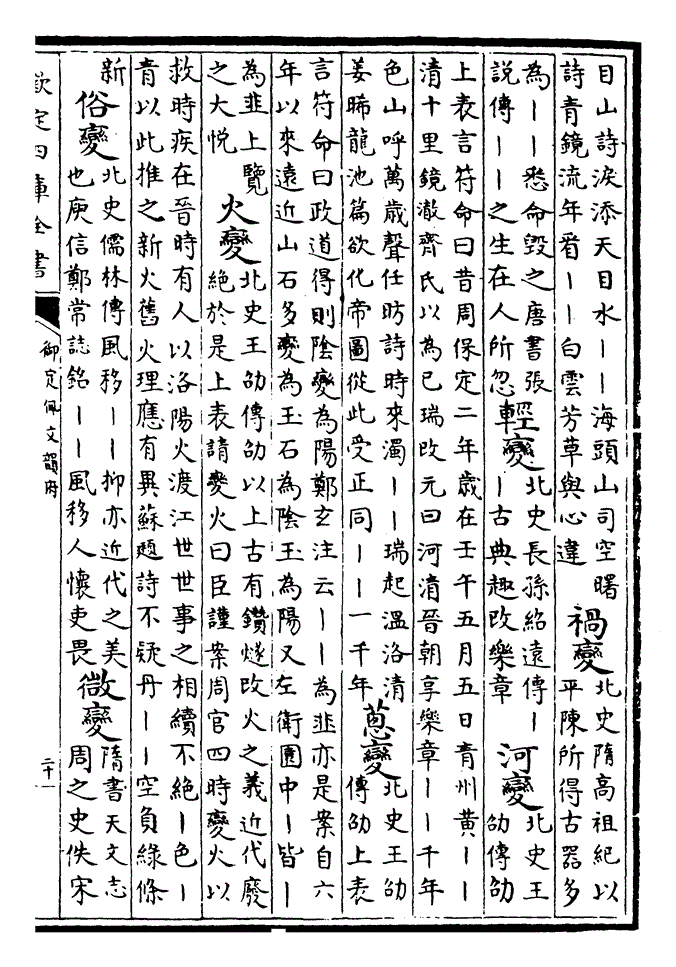 目山詩淚添天目水丨丨海頭山司空曙
詩青鏡流年看丨丨白雲芳草與心違
禍變
北史隋高祖紀以
平陳所得古器多
為丨丨悉命毀之唐書張
説傳丨丨之生在人所忽
輕變
北史長孫紹遠傳丨
丨古典趣改樂章
河變
北史王
劭傳劭
上表言符命曰昔周保定二年歳在壬午五月五日青州黄丨丨
清十里鏡澈齊氏以為已瑞改元曰河清晉朝享樂章丨丨千年
色山呼萬歳聲任昉詩時來濁丨丨瑞起溫洛清
姜晞龍池篇欲化帝圖從此受正同丨丨一千年
蔥變
北史王劭
傳劭上表
言符命曰政道得則陰變為陽鄭玄注云丨丨為韮亦是案自六
年以來遠近山石多變為玉石為陰玉為陽又左衛園中丨皆丨
為韮上覽
之大悦
火變
北史王劭傳劭以上古有鑽燧改火之義近代廢
絶於是上表請變火曰臣謹案周官四時變火以
救時疾在晉時有人以洛陽火渡江世世事之相續不絶丨色丨
青以此推之新火舊火理應有異蘇頲詩不疑丹丨丨空負綠條
新
俗變
北史儒林傳風移丨丨抑亦近代之美
也庾信鄭常誌銘丨丨風移人懷吏畏
微變
隋書天文志
周之史佚宋
欽定四庫全書
御定佩文韻府
二十一